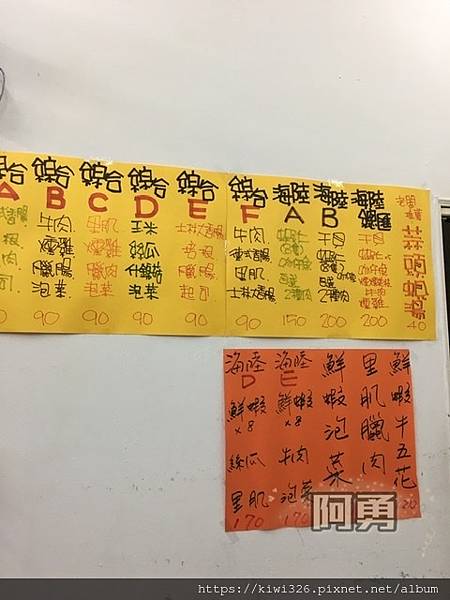 綜合
A
90
綜合
B
牛肉
燻雞
臘腸
泡菜
90
綜合
C
里肌
燻雞
臘肉
泡菜
90
綜合
D
玉米
絲瓜
什錦菇
泡菜
90
綜合
E
士林大香腸
培根
臘腸
起司
90
綜合
F
牛肉
里肌
士林大香腸
90
海陸
A
150
海陸
B
干貝
200
海陸
干貝
牛肉
燻雞
200
蒜頭蛤湯
40
海陸
D
鮮蝦
x8
絲瓜
里肌
170
海陸
E
鮮蝦
x8
牛肉
泡菜
170
鮮蝦泡菜
里肌臘肉
鮮蝦牛五花
阿勇
https://kiwi326.pixnet.net/album